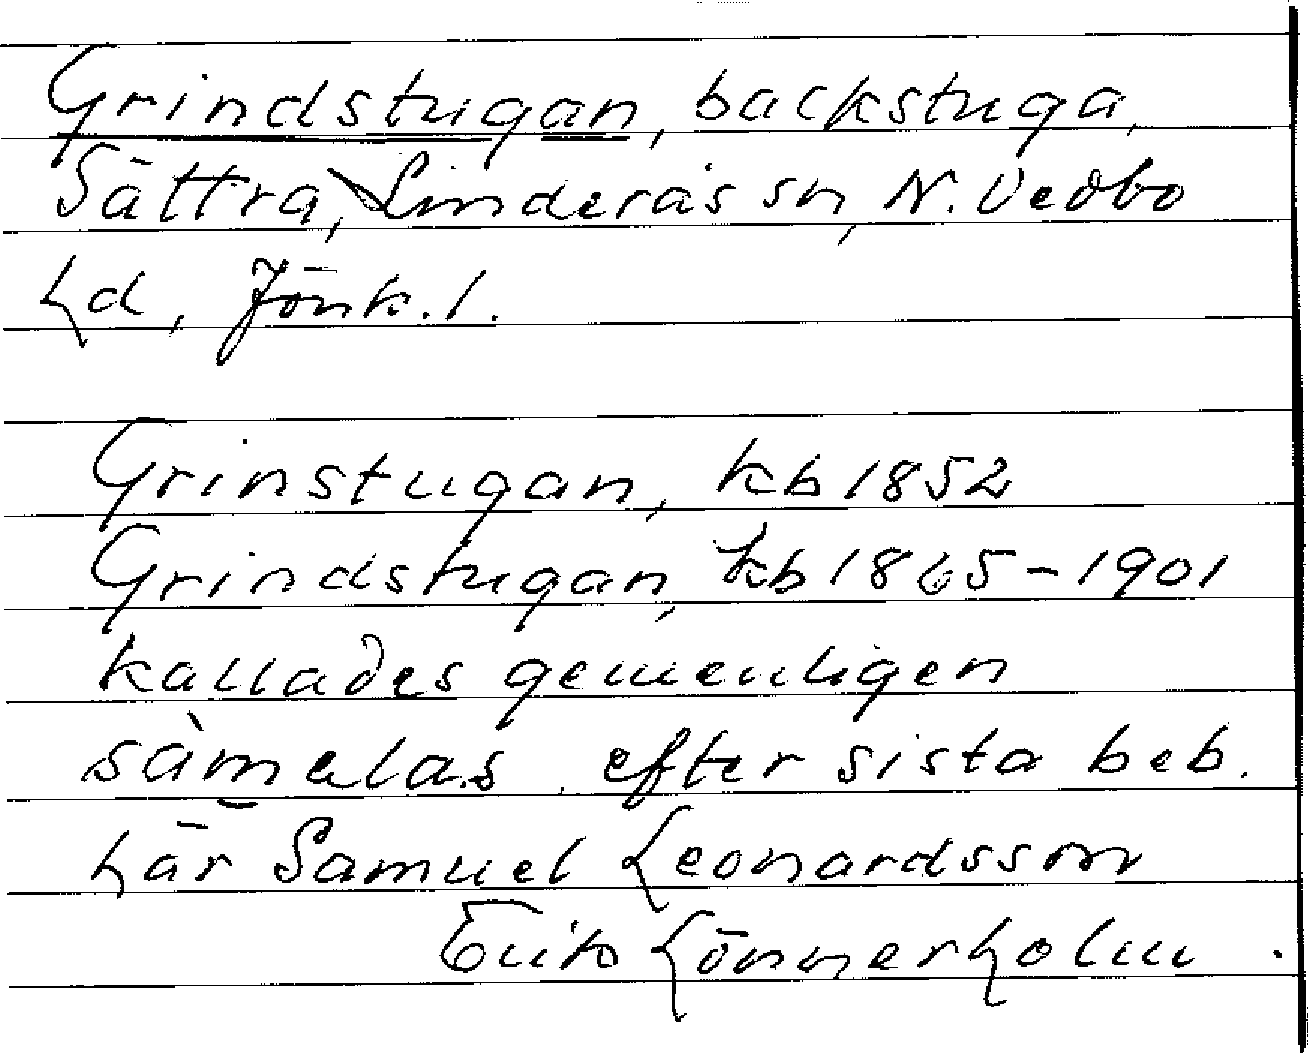 Grindstugan, backstuga,
Sättra, Linderås sn, N. Vedbo
hd, Jönk. l.
Grinstugan, kb 1852
Grindstugan, kb 1865-1901
kallades gemenligen
sàmelas. efter sista beb.
här Samuel Leonardsson
Erik Lönnerholm.